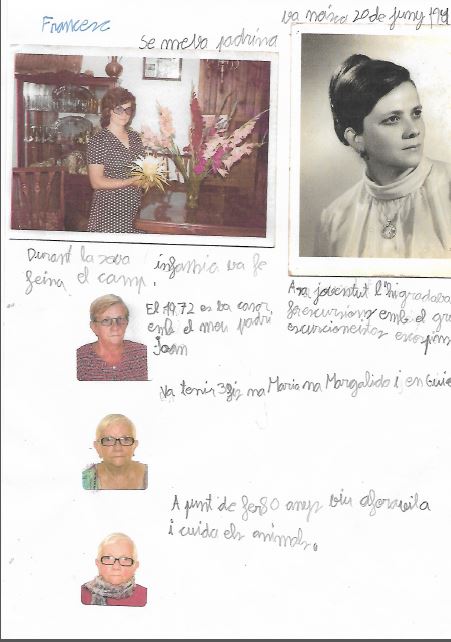 Francesc
va náixa 20 de juny 19
Se meva padrina
Durant la seva infancia va fe
feina el camp.
A sa joventut l'higradaba
fer excursions emb el gru
escursionistas
El 1972 es ba casar
emb el meu padri
Joan
Va tenir 3 fis na Maria na Margalida i en Guie
A punt de fer 80 anys viu aforavila
i cuida els animals.